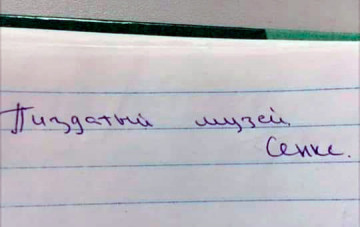 Пиздатый музей
Сенкс.